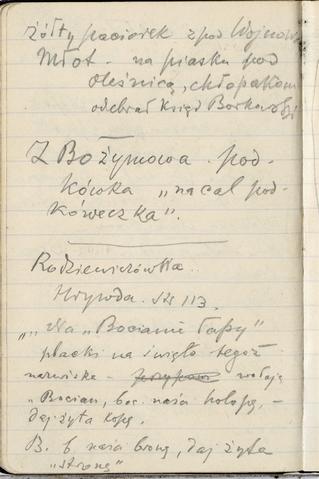 żółty paciorek z pod Wojnowa
Młot - na piasku pod
Oleśnicą, chłopakom
odebrał Ksiądz Borkowski
Z Bożymowa. pod-
kówka „na cal pod-
kóweczka".
Rodziewiczówna.
Hrywda. str 113.
„Na „Bocianie łapy"
placki na święto tegoż
nazwiska - wołają
„Bocian, boc. naści hołopę, -
daj żyta kopę.
B. b. naści bronę, daj żyta
„stronę"